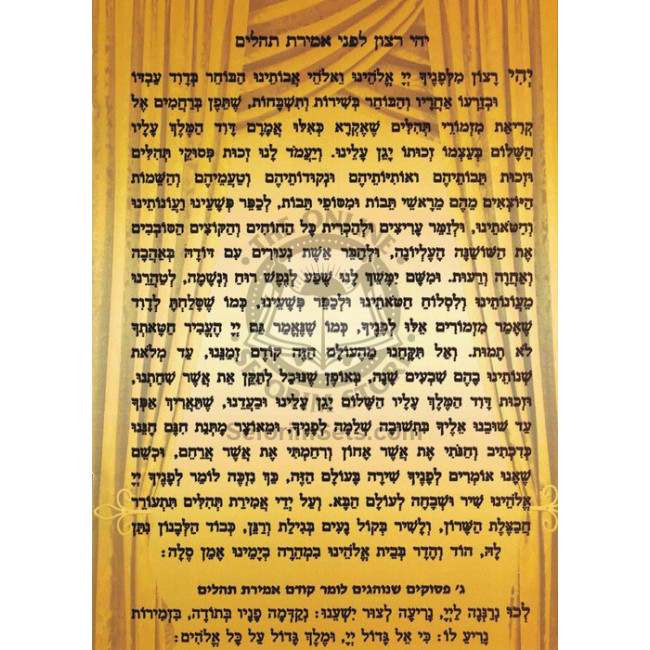 יהי רצון לפני אמירת תהלים
יְהִי רָצוֹן מִלְּפָנֶיךָ יְיָ אֱלֹהֵינוּ וֵאלֹהֵי אֲבוֹתֵינוּ הַבּוֹחֵר בְּדָוִד עַבְדּוֹ
וּבְזַרְעוֹ אַחֲרָיו וְהַבּוֹחֵר בְּשִׁירוֹת וְתִשְׁבָּחוֹת, שֶׁתֵּפֶן בְּרַחֲמִים אֶל
קְרִיאַת מִזְמוֹרֵי תְהִלִּים שֶׁאֶקְרָא כְּאִלּוּ אֲמָרָם דָּוִד הַמֶּלֶךְ עָלָיו
הַשָּׁלוֹם בְּעַצְמוֹ זְכוּתוֹ יָגֵן עָלֵינוּ. וְיַעֲמֹד לָנוּ זְכוּת פְּסוּקֵי תְהִלִּים
וּזְכוּת תֵּבוֹתֵיהֶם וְאוֹתִיּוֹתֵיהֶם וּנְקוּדוֹתֵיהֶם וְטַעֲמֵיהֶם וְהַשֵּׁמוֹת
הַיּוֹצְאִים מֵהֶם מֵרָאשֵׁי תֵבוֹת וּמִסּוֹפֵי תֵבוֹת, לְכַפֵּר פְּשָׁעֵינוּ וַעֲוֹנוֹתֵינוּ
וְחַטֹּאתֵינוּ, וּלְזַמֵּר עָרִיצִים וּלְהַכְרִית כָּל הַחוֹחִים וְהַקּוֹצִים הַסּוֹבְבִים
אֶת הַשּׁוֹשַׁנָּה הָעֶלְיוֹנָה, וּלְחַבֵּר אֵשֶׁת נְעוּרִים עִם דּוֹדָהּ בְּאַהֲבָה
וְאַחֲוָה וְרֵעוּת. וּמִשָּׁם יִמָּשֵׁךְ לָנוּ שֶׁפַע לְנֶפֶשׁ רוּחַ וּנְשָׁמָה, לְטַהֲרֵנוּ
מֵעֲוֹנוֹתֵינוּ וְלִסְלוֹחַ חַטֹּאתֵינוּ וּלְכַפֵּר פְּשָׁעֵינוּ, כְּמוֹ שֶׁסָּלַחְתָּ לְדָוִד
שֶׁאָמַר מִזְמוֹרִים אֵלּוּ לְפָנֶיךָ, כְּמוֹ שֶׁנֶּאֱמַר גַּם יְיָ הֶעֱבִיר חַטָּאתְךָ
לֹא תָמוּת. וְאַל תִּקָּחֵנוּ מֵהָעוֹלָם הַזֶּה קוֹדֶם זְמַנֵּנוּ, עַד מְלֹאת
שְׁנוֹתֵינוּ בָּהֶם שִׁבְעִים שָׁנָה, בְּאוֹפֶן שֶׁנּוּכַל לְתַקֵּן אֶת אֲשֶׁר שִׁחַתְנוּ,
וּזְכוּת דָּוִד הַמֶּלֶךְ עָלָיו הַשָּׁלוֹם יָגֵן עָלֵינוּ וּבַעֲדֵנוּ, שֶׁתַּאֲרִיךְ אַפְּךָ
עַד שׁוּבֵנוּ אֵלֶיךָ בִּתְשׁוּבָה שְׁלֵמָה לְפָנֶיךָ, וּמֵאוֹצַר מַתְּנַת חִנָּם חָנֵּנוּ
כְּדִכְתִיב וְחַנֹּתִי אֶת אֲשֶׁר אָחוֹן וְרִחַמְתִּי אֶת אֲשֶׁר אֲרַחֵם, וּכְשֵׁם
שֶׁאָנוּ אוֹמְרִים לְפָנֶיךָ שִׁירָה בָּעוֹלָם הַזֶּה, כָּךְ נִזְכֶּה לוֹמַר לְפָנֶיךָ יְיָ
אֱלֹהֵינוּ שִׁיר וּשְׁבָחָה לָעוֹלָם הַבָּא. וְעַל יְדֵי אֲמִירַת תְּהִלִּים תִּתְעוֹרֵר
חֲבַצֶּלֶת הַשָּׁרוֹן, וְלָשִׁיר בְּקוֹל נָעִים בְּגִילַת וְרַנֵּן, כְּבוֹד הַלְּבָנוֹן נִתַּן
לָהּ, הוֹד וְהָדָר בְּבֵית אֱלֹהֵינוּ בִּמְהֵרָה בְיָמֵינוּ אָמֵן סֶלָה:
ג' פסוקים שנוהגים לומר קודם אמירת תהלים
לְכוּ נְרַנְּנָה לַיְיָ, נָרִיעָה לְצוּר יִשְׁעֵנוּ: נְקַדְּמָה פָנָיו בְּתוֹדָה, בִּזְמִירוֹת
נָרִיעַ לוֹ: כִּי אֵל גָּדוֹל יְיָ, וּמֶלֶךְ גָּדוֹל עַל כָּל אֱלֹהִים:
THE ONLINE
SEFORIM STORE
SeforimSets.com